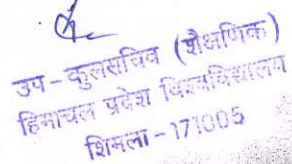 उप-कुलसचिव (शैक्षणिक)
हिमाचल प्रदेश विश्वविद्यालय
शिमला-171005